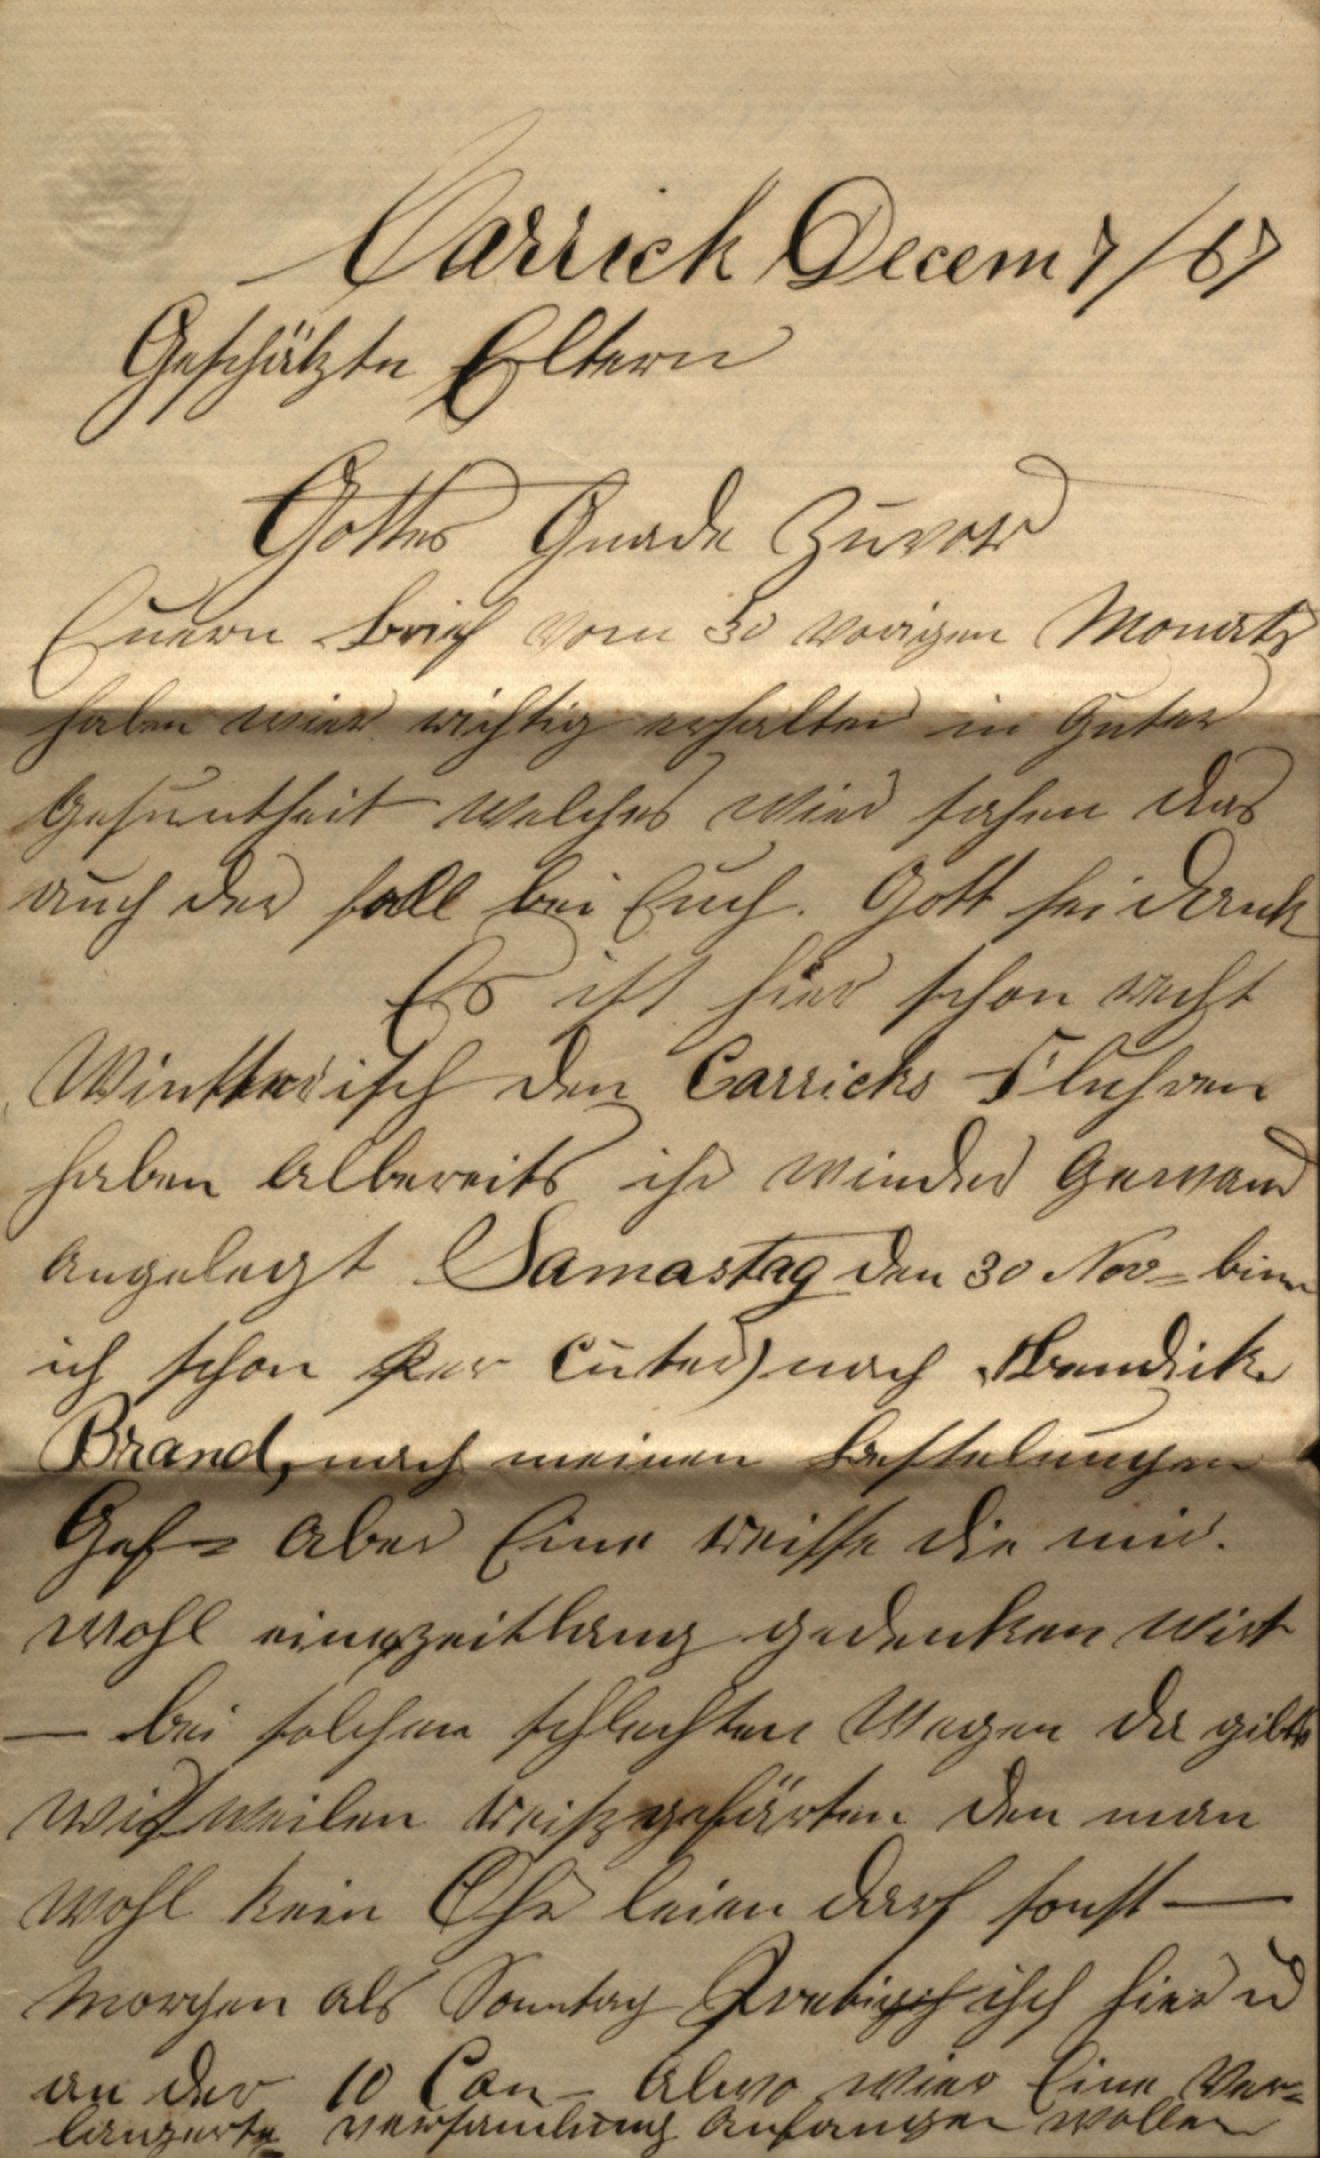 Carrick Decem 7/67
Geschätzte Eltern
Gottes Gnade Zuvor
Euern Brief vom 30 vorigen Monats
haben wier richtig erhalten in Guter
Gesuntheit welches wier sahen das
auch der fall bei Euch. Gott sei dank
Es ist hier schon recht
Winterisch den Carricks Fluhren
haben Albereits ihr winder Gewand
Angelegt Samastag den 30 Nov= binn
ich schon per Cuter) nach
Brand, nach meinen Bestelungen
Gef= Aber Eine reisse die mir.
wohl eine zeitlang gedenken wirt
— bei solchen schlechten Wegen da gibts
weilen reisgefärten den man
wohl kein Ohr leien darf sonst —
Morgen als Sonntag Predig ich hier u
an der 10 Con- Alwo wier Eine Ver=
längerte versamlung Anfangen wollen